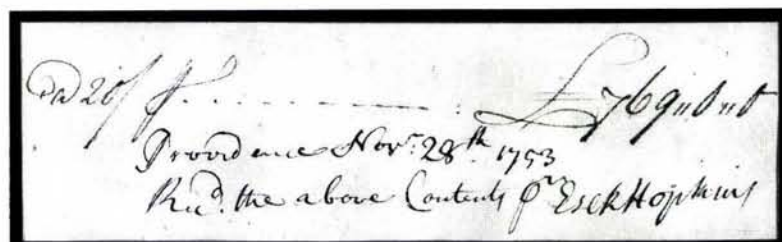 pd 26/
Providence Novr. 28th 1753
Recd. the above Contents pr Esek Hopkins